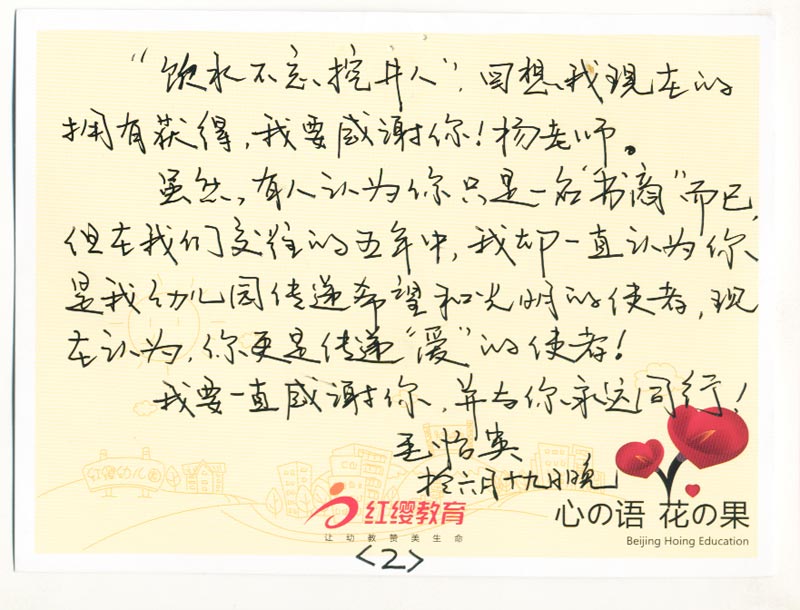 “饮水不忘挖井人”，回想我现在的
拥有获得，我要感谢你！杨老师。
虽然，有人认为你只是一名“书商”而已，
但在我们交往的五年中，我却一直认为你
是我幼儿园传递希望和光明的使者，现
在认为，你更是传递“爱”的使者！
我要一直感谢你，并与你永远同行！
王怡英
于六月十九日晚
红缨教育
让幼教赞美生命
心の语 花の果
Beijing Hoing Education
<2>